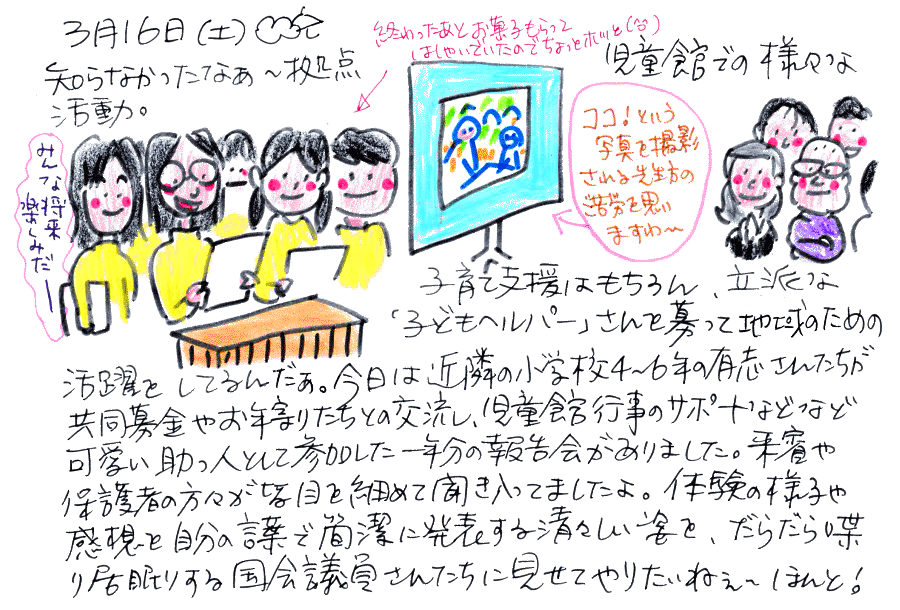 3月16日(土)
知らなかったなぁ〜拠点
活動。
終わったあとお菓子もらって
はしゃいでいたのでちょっとホッと(^^)
児童館での様々な
ココ!という
写真を撮影
される先生方の
苦労を思い
ますわ〜
みんな将来
楽しみだー
子育て支援はもちろん、立派な
「子どもヘルパー」さんを募って地域のための
活躍をしてるんだぁ。今日は近隣の小学校4〜6年の有志さんたちが
共同募金やお年寄りたちとの交流し、児童館行事のサポートなどなど
可愛い助っ人として参加した一年分の報告会がありました。来賓や
保護者の方々が皆目を細めて聞き入ってましたよ。体験の様子や
感想を自分の言葉で簡潔に発表する清々しい姿を、だらだら喋
り居眠りする国会議員さんたちに見せてやりたいねぇ〜ほんと!